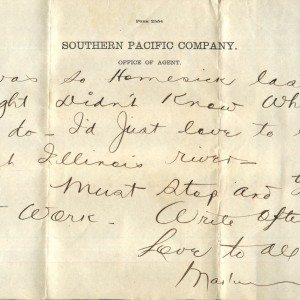 SOUTHERN PACIFIC COMPANY.
OFFICE OF AGENT.
was so Homesick las
ght Didn't Know Wh
do - I'd Just love to
Illinois river -
Must Stop and
Work - Write Ofte
Love to all